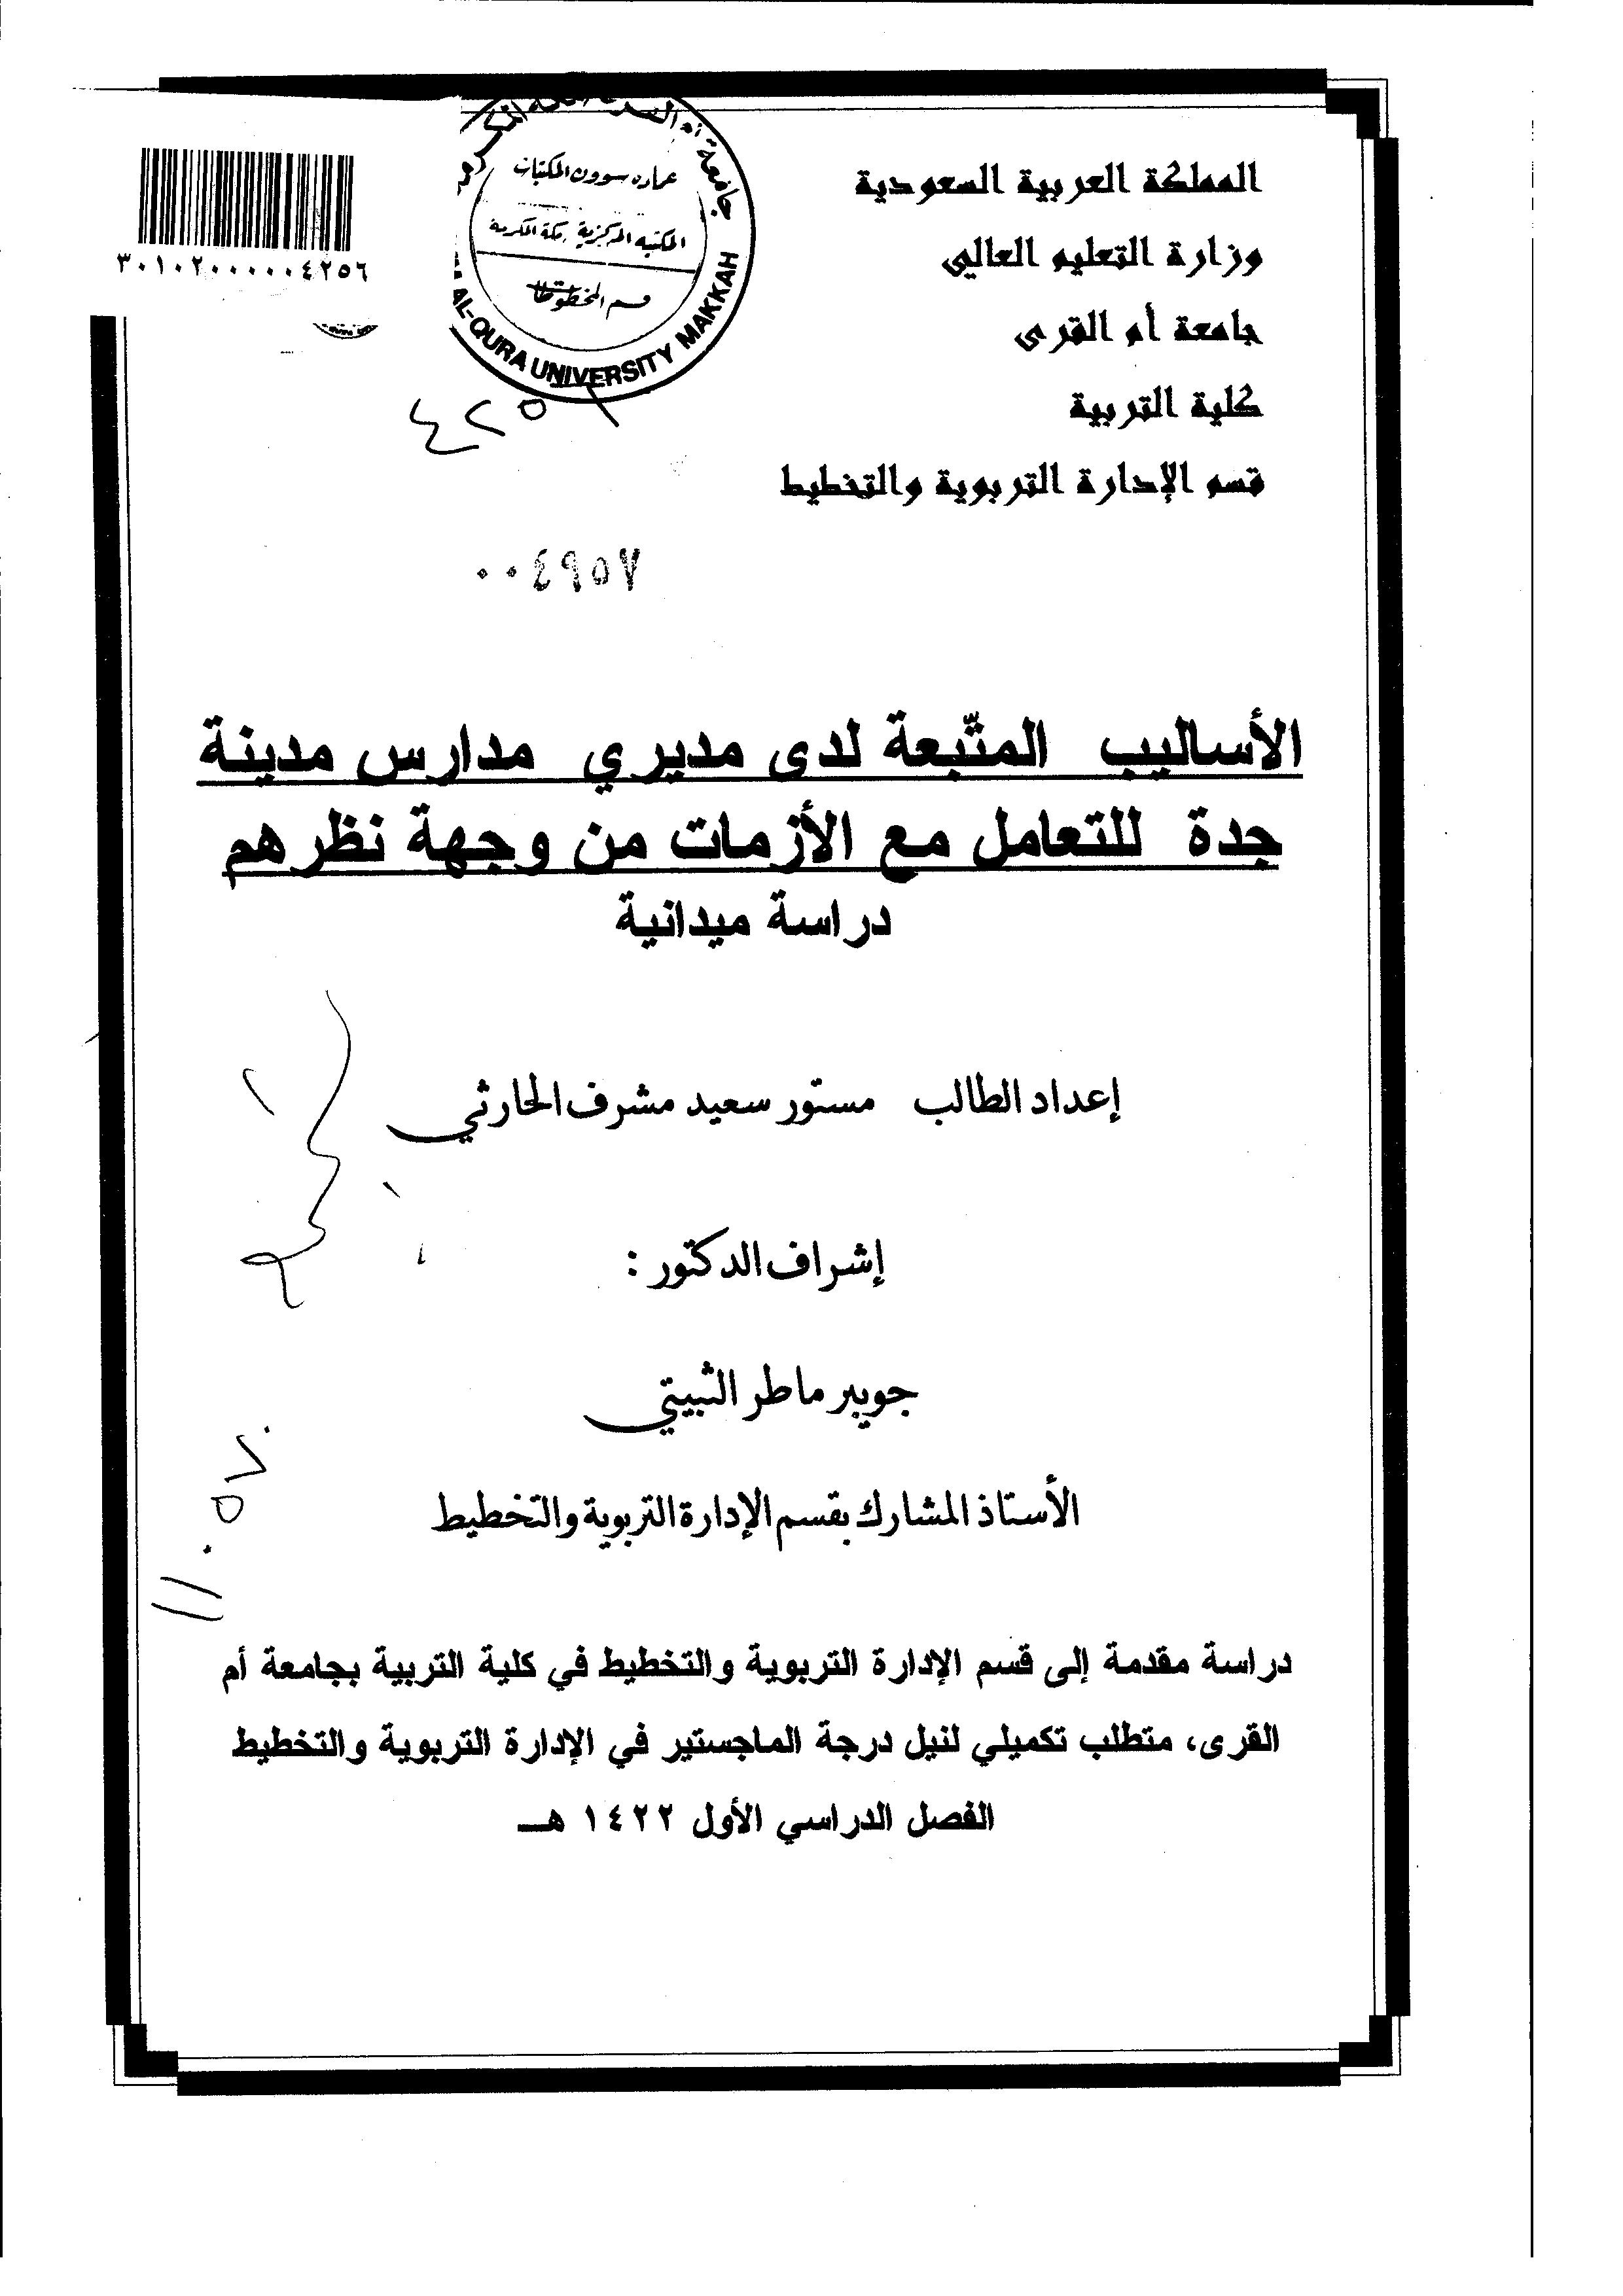 المملكة العربية السعودية
وزارة التعليم العالي
جامعة أم القرى
كلية التربية
قسم الإدارة التربوية والتخطيط
٣٠١٠٢٠٠٠٠٠٤٢٥٦
جامعة أم
عمادة شؤون المكتبات
المكتبة المركزية بمكة المكرمة
قسم المخطوطات
AL-QURA UNIVERSITY MAKKAH
٤٢٥٦
٠٠٤٩٥٧
الأساليب المتّبعة لدى مديري مدارس مدينة
جدة للتعامل مع الأزمات من وجهة نظرهم
دراسة ميدانية
إعداد الطالب مستور سعيد مشرف الحارثي
إشراف الدكتور :
جويبر ماطر الثبيتي
الأستاذ المشارك بقسم الإدارة التربوية والتخطيط
دراسة مقدمة إلى قسم الإدارة التربوية والتخطيط في كلية التربية بجامعة أم
القرى، متطلب تكميلي لنيل درجة الماجستير في الإدارة التربوية والتخطيط
الفصل الدراسي الأول ١٤٢٢ هـ